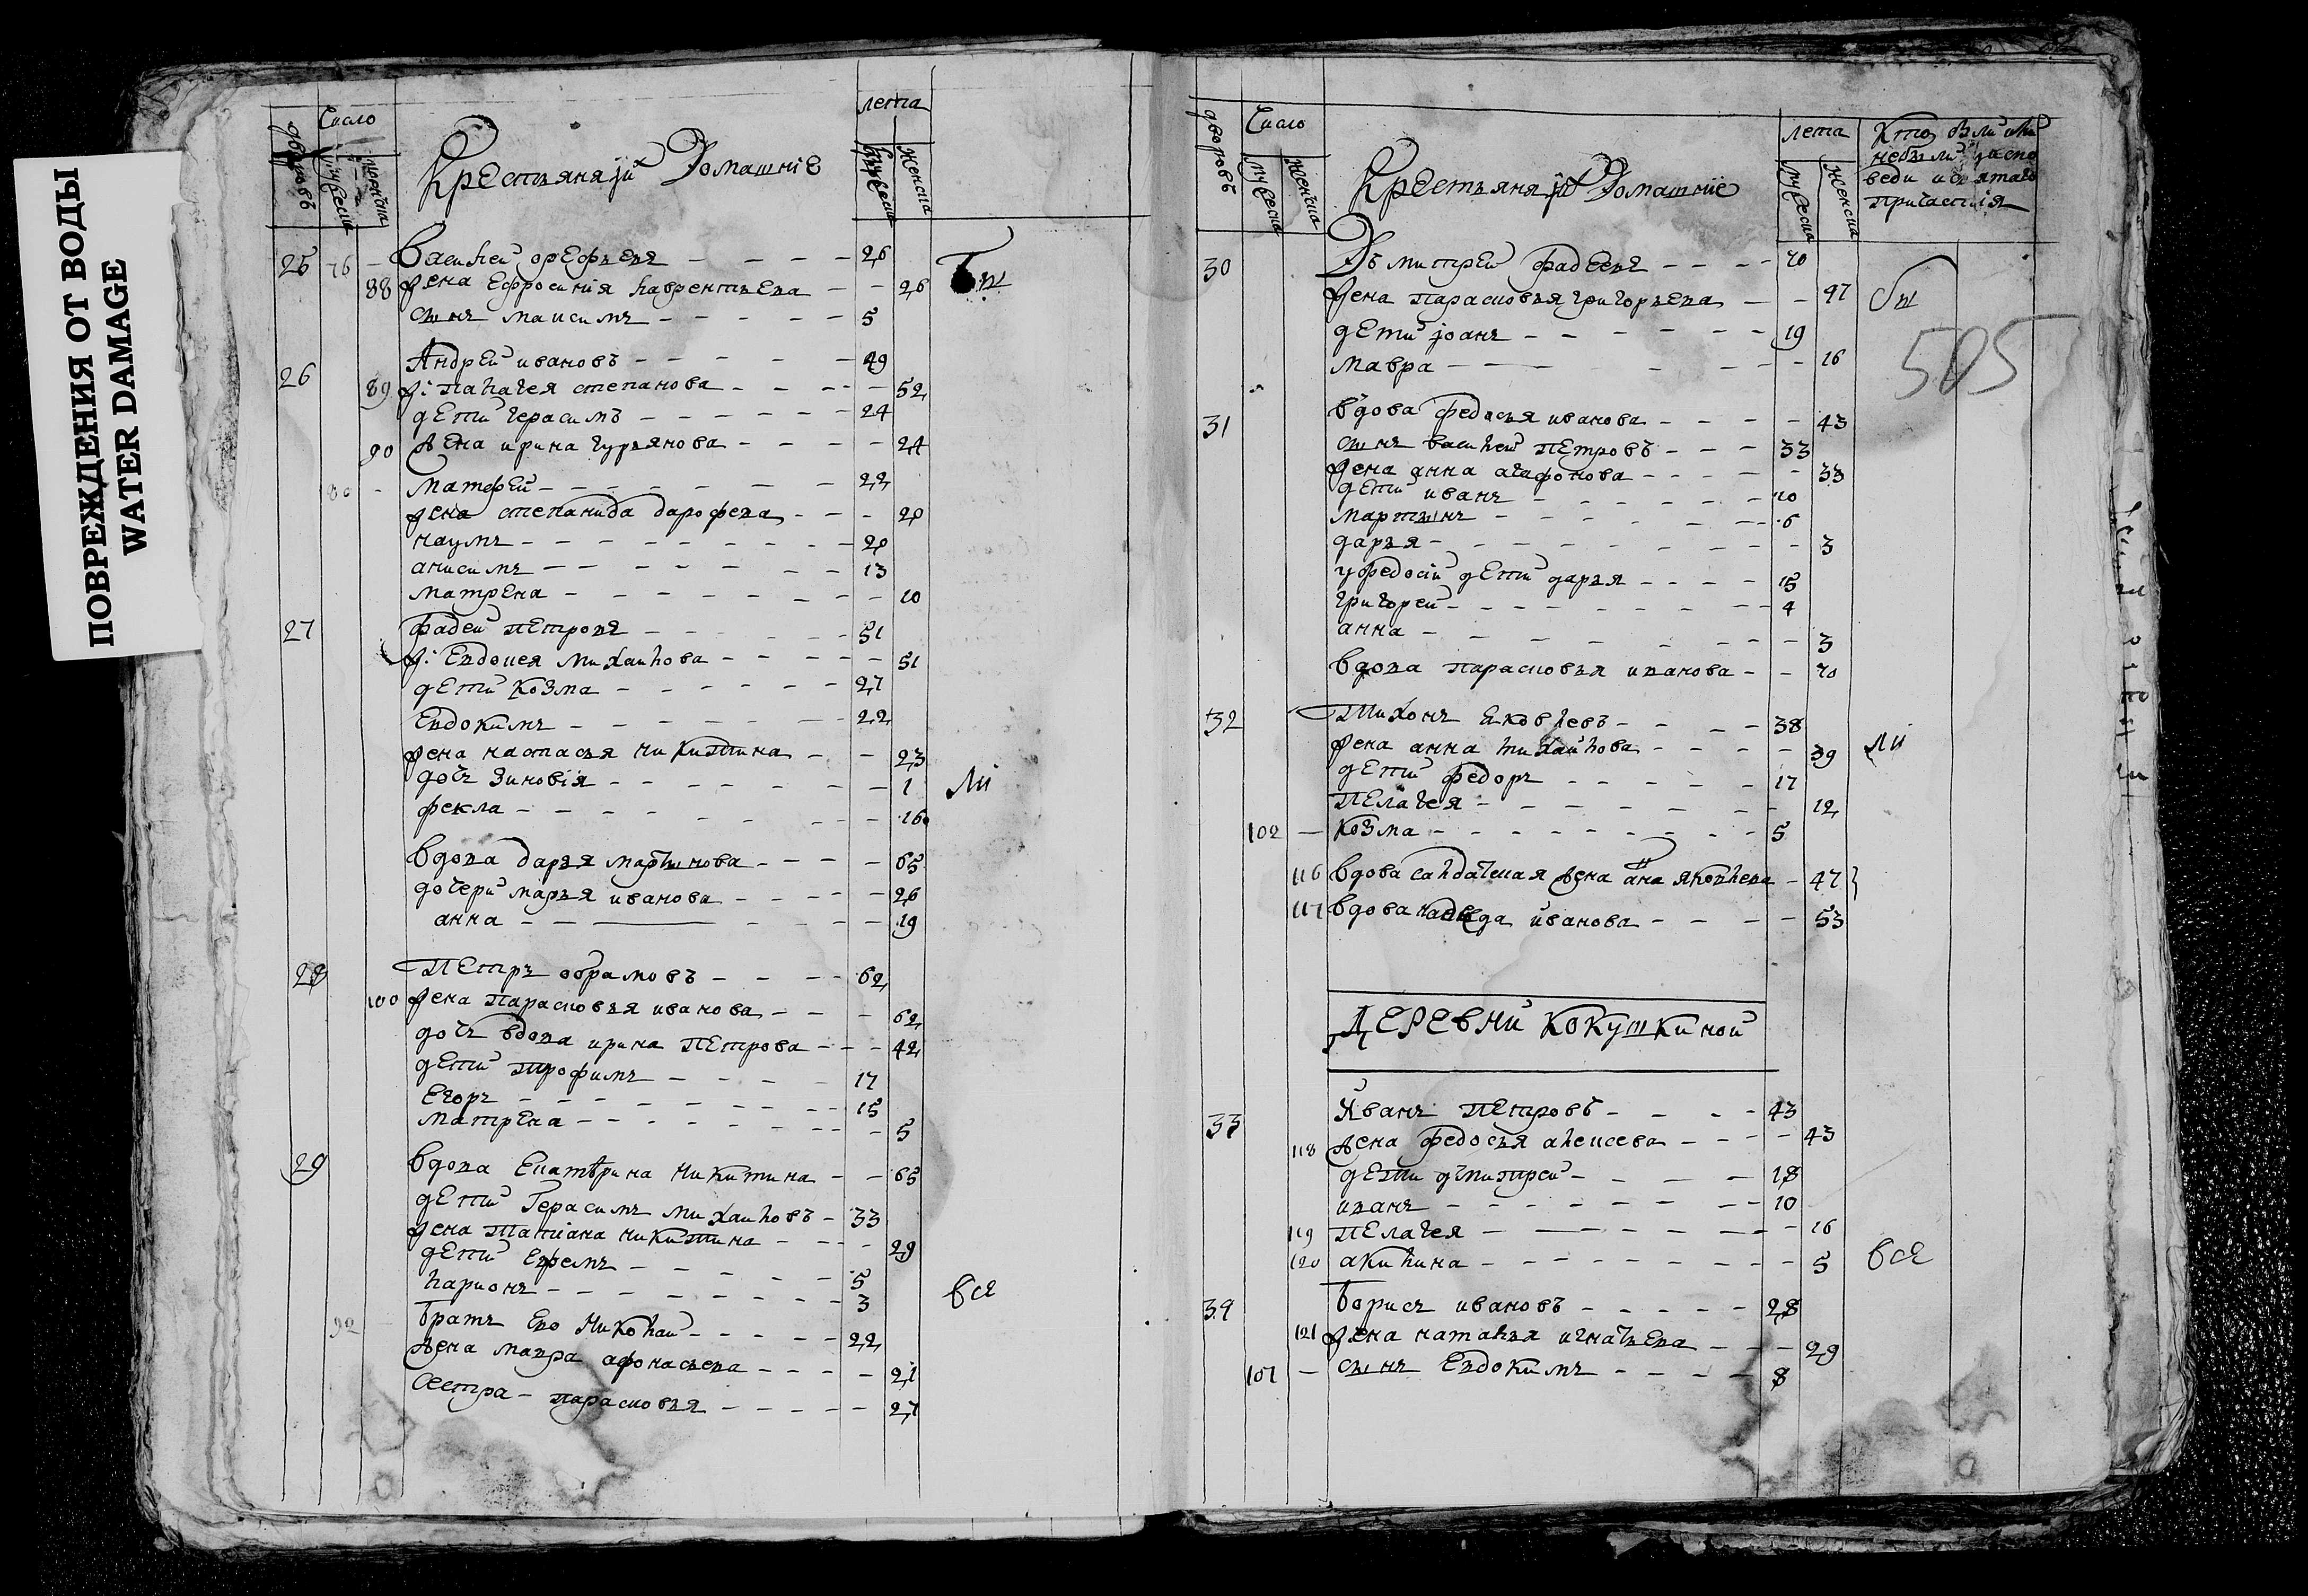 ПОВРЕЖДЕНИЯ ОТ ВОДЫ
WATER DAMAGE
дворовъ
Число
мужеска
женска
Крестьяня ихъ Домашніе
лета
мужеска
женска
25 76 — Василей орефьевъ 26
88 жена Ефросинія лаврентьева 26
сынъ максимъ 5
26 Андрей ивановъ 49
89 ж: палагея степанова 52
дети герасимъ 24
90 жена ирина гурьянова 24
80 - Матфей 22
жена степанида дарофева 20
наумъ 20
анисимъ 13
матрена 10
27 Фадей петровъ 51
ж: Евдокея михайлова 51
дети козма 27
Евдокимъ 22
жена настасья никитина 23
дочь зиновія 1 ли
фекла 16
вдова дарья мартынова 65
дочери марья иванова 26
анна 19
28 Петръ обрамовъ 62
100 жена парасковья иванова 62
дочь вдова ирина петрова 42
дети трофимъ 17
Егоръ 15
матрена 5
29 вдова Екатерина никитина 65
дети Герасимъ михайловъ 33
жена татіана никитина 29
дети Ефремъ 5
ларионъ 3 все
90 братъ Ево николай 22
жена мавра афонасьева 21
сестра парасковья 27
дворовъ
Число
мужеска
женска
Крестьяня ихъ Домашніе
лета
мужеска
женска
Кто были или
небыли уиспо
веди исвятаго
причастия
30 Дъмитрей фадеевъ 70
жена парасковья григорьева 47
дети іоанъ 19
мавра 16
505
31 вдова федосья иванова 43
сынъ василей петровъ 33
жена анна агафонова 33
дети иванъ 10
мартынъ 6
дарья 3
уфедосіи дети дарья 15
григорей 4
анна 3
вдова парасковья иванова 70
32 Тихонъ яковлевъ 38
жена анна михайлова 39 ли
дети федоръ 17
пелагея 12
102 — козма 5
116 вдова салдацкая жена анна яковлева 47
117 вдова надежда иванова 53
ДЕРЕВНИ КОКУШКИНОЙ
33 Иванъ петровъ 43
118 жена федосья алексеева 43
дети дъмитрей 18
иванъ 10
119 пелагея 16
120 акилина 5 все
34 борисъ ивановъ 28
121 жена наталья игнатьева 29
107 — сынъ Евдокимъ 8